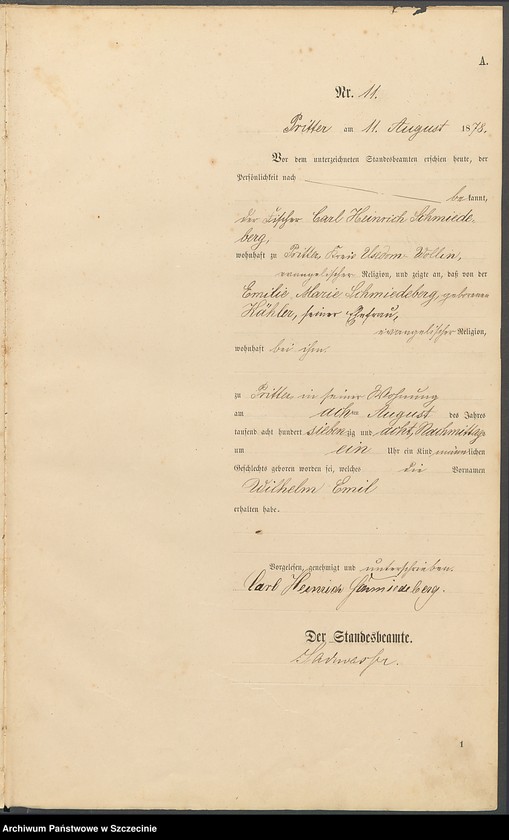 A.
Nr. 11.
Pritter am 11. August 1878.
Vor dem unterzeichneten Standesbeamten erschien heute, der
Persönlichkeit nach
bekannt,
der Fischer Carl Heinrich Schmiede-
berg,
wohnhaft zu Pritter, Kreis Usedom-Wollin,
evangelischer Religion, und zeigte an, daß von der
Emilie Marie Schmiedeberg, geborenen
Kähler, seiner Ehefrau,
evangelischer Religion,
wohnhaft bei ihm.
zu Pritter in seiner Wohnung
am achten August des Jahres
tausend acht hundert siebenzig und acht, Nachmittags
um ein Uhr ein Kind männlichen
Geschlechts geboren worden sei, welches die Vornamen
Wilhelm Emil
erhalten habe.
Vorgelesen, genehmigt und unterschrieben.
Carl Heinrich Schmiedeberg.
Der Standesbeamte.
1
Archiwum Państwowe w Szczecinie